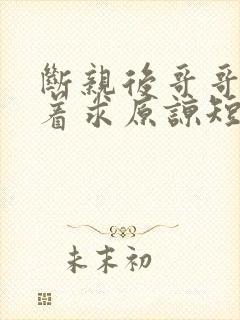 斷親後哥哥
着求原諒短
未末初